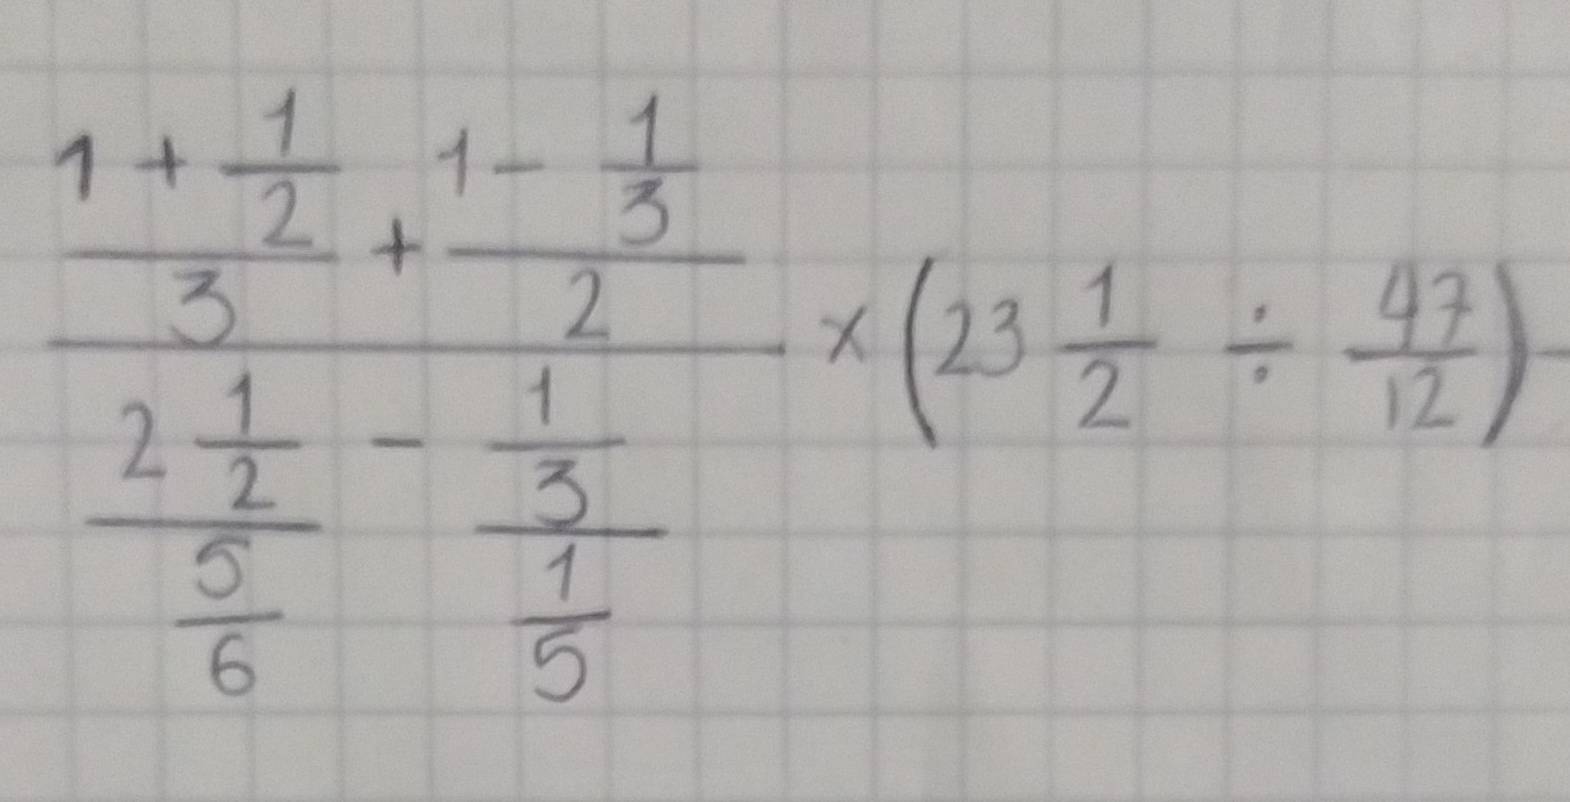 \frac{\frac{1 + \frac{1}{2}}{3} + \frac{1 - \frac{1}{3}}{2}}{\frac{2\frac{1}{2}}{\frac{5}{6}} - \frac{\frac{1}{3}}{\frac{1}{5}}} × (23\frac{1}{2} ÷ \frac{47}{12}) -